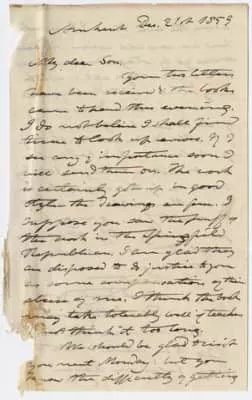 Amherst Dec. 21st 1859
My dear Son,
Your two letters
have been received & the books
came to hand this evening.
I do not believe I shall find
time to look up errors. If I
see any of importance soon I
will send them on. The work
is certainly got up in good
style the drawings are fine. I
suppose you saw the puff of
the work in the Springfield
Republican. I am glad they
are disposed to do justice to you
as some compensation of their
abuse of me. I think the book
may take tolerably well if teachers
do not think it too long.
We should be glad to visit
you next Monday, but you
know the difficulty of getting